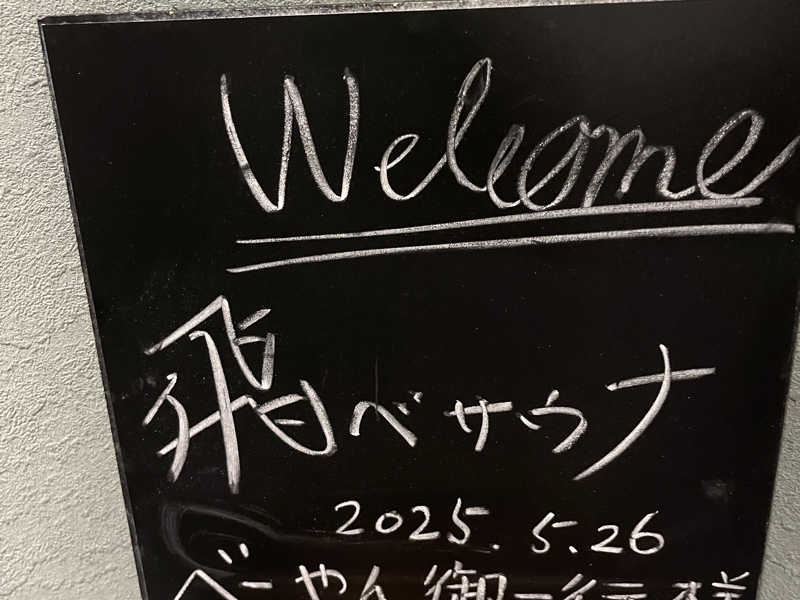 Welcome
飛べサウナ
2025.5.26
べーやん御一行様